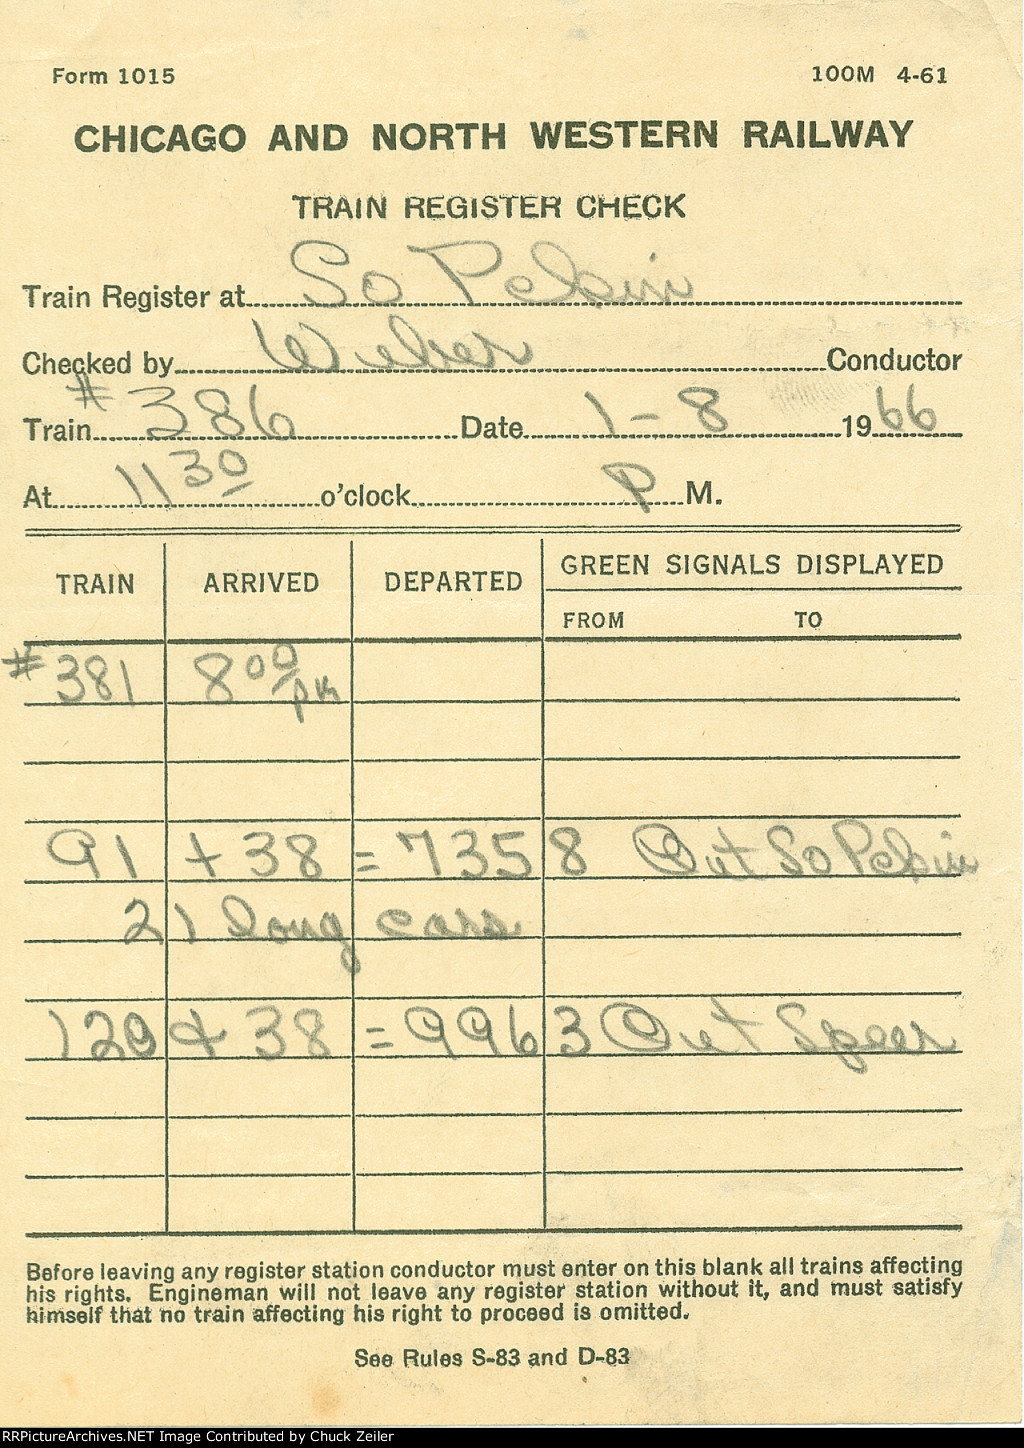 Form 1015 100M 4-61
CHICAGO AND NORTH WESTERN RAILWAY
TRAIN REGISTER CHECK
Train Register at So Pekin
Checked by Weber Conductor
Train #386 Date 1-8 1966
At 11 30 o'clock P M.
TRAIN ARRIVED DEPARTED GREEN SIGNALS DISPLAYED
FROM TO
#381 8 00 pm
91 + 38 = 7358 Out So Pekin
21 long cars
129 + 38 = 9963 Out Speer
Before leaving any register station conductor must enter on this blank all trains affecting
his rights. Engineman will not leave any register station without it, and must satisfy
himself that no train affecting his right to proceed is omitted.
See Rules S-83 and D-83
RRPictureArchives.NET Image Contributed by Chuck Zeiler